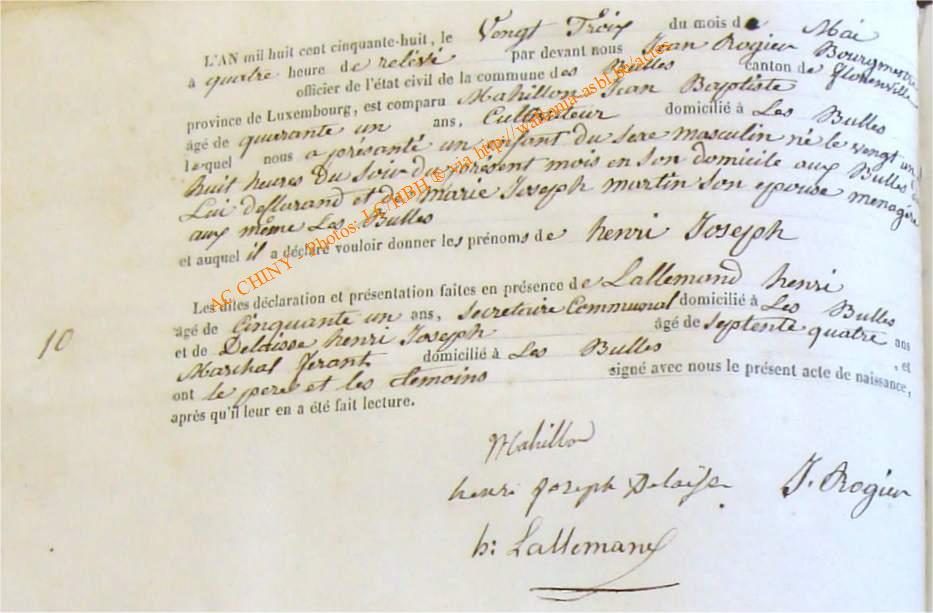 L'AN mil huit cent cinquante-huit, le Vingt Trois du mois de Mai
à quatre heure de relévé par devant nous Jean Rogier Bourgmestre
officier de l'état civil de la commune des Bulles canton de florenville
province de Luxembourg, est comparu Mahillon Jean Baptiste
âgé de quarante un ans, Cultivateur domicilié à Les Bulles
lequel nous a présanté un enfant du sexe masculin né le vingt un
huit heures du soir du présent mois en son domicile aux Bulles de
Lui desflarand et de marie Joseph martin son epouse menagére
aux même Les Bulles
et auquel il a déclaré vouloir donner les prénoms de henri Joseph
Les dites déclaration et présentation faites en présence de Lallemand henri
âgé de Cinquante un ans, secretaire Communal domicilié à Les Bulles
et de Delaisse henri Joseph âgé de septente quatre ans
Marchal ferant domicilié à Les Bulles , et
ont le pere et les temoins signé avec nous le présent acte de naissance,
après qu'il leur en a été fait lecture.
10
Mahillon
henri Joseph Delaisse J. Rogier
h: Lallemand
AC CHINY - Photos: LC/HBH ® via http://wallonia-asbl.be/actes